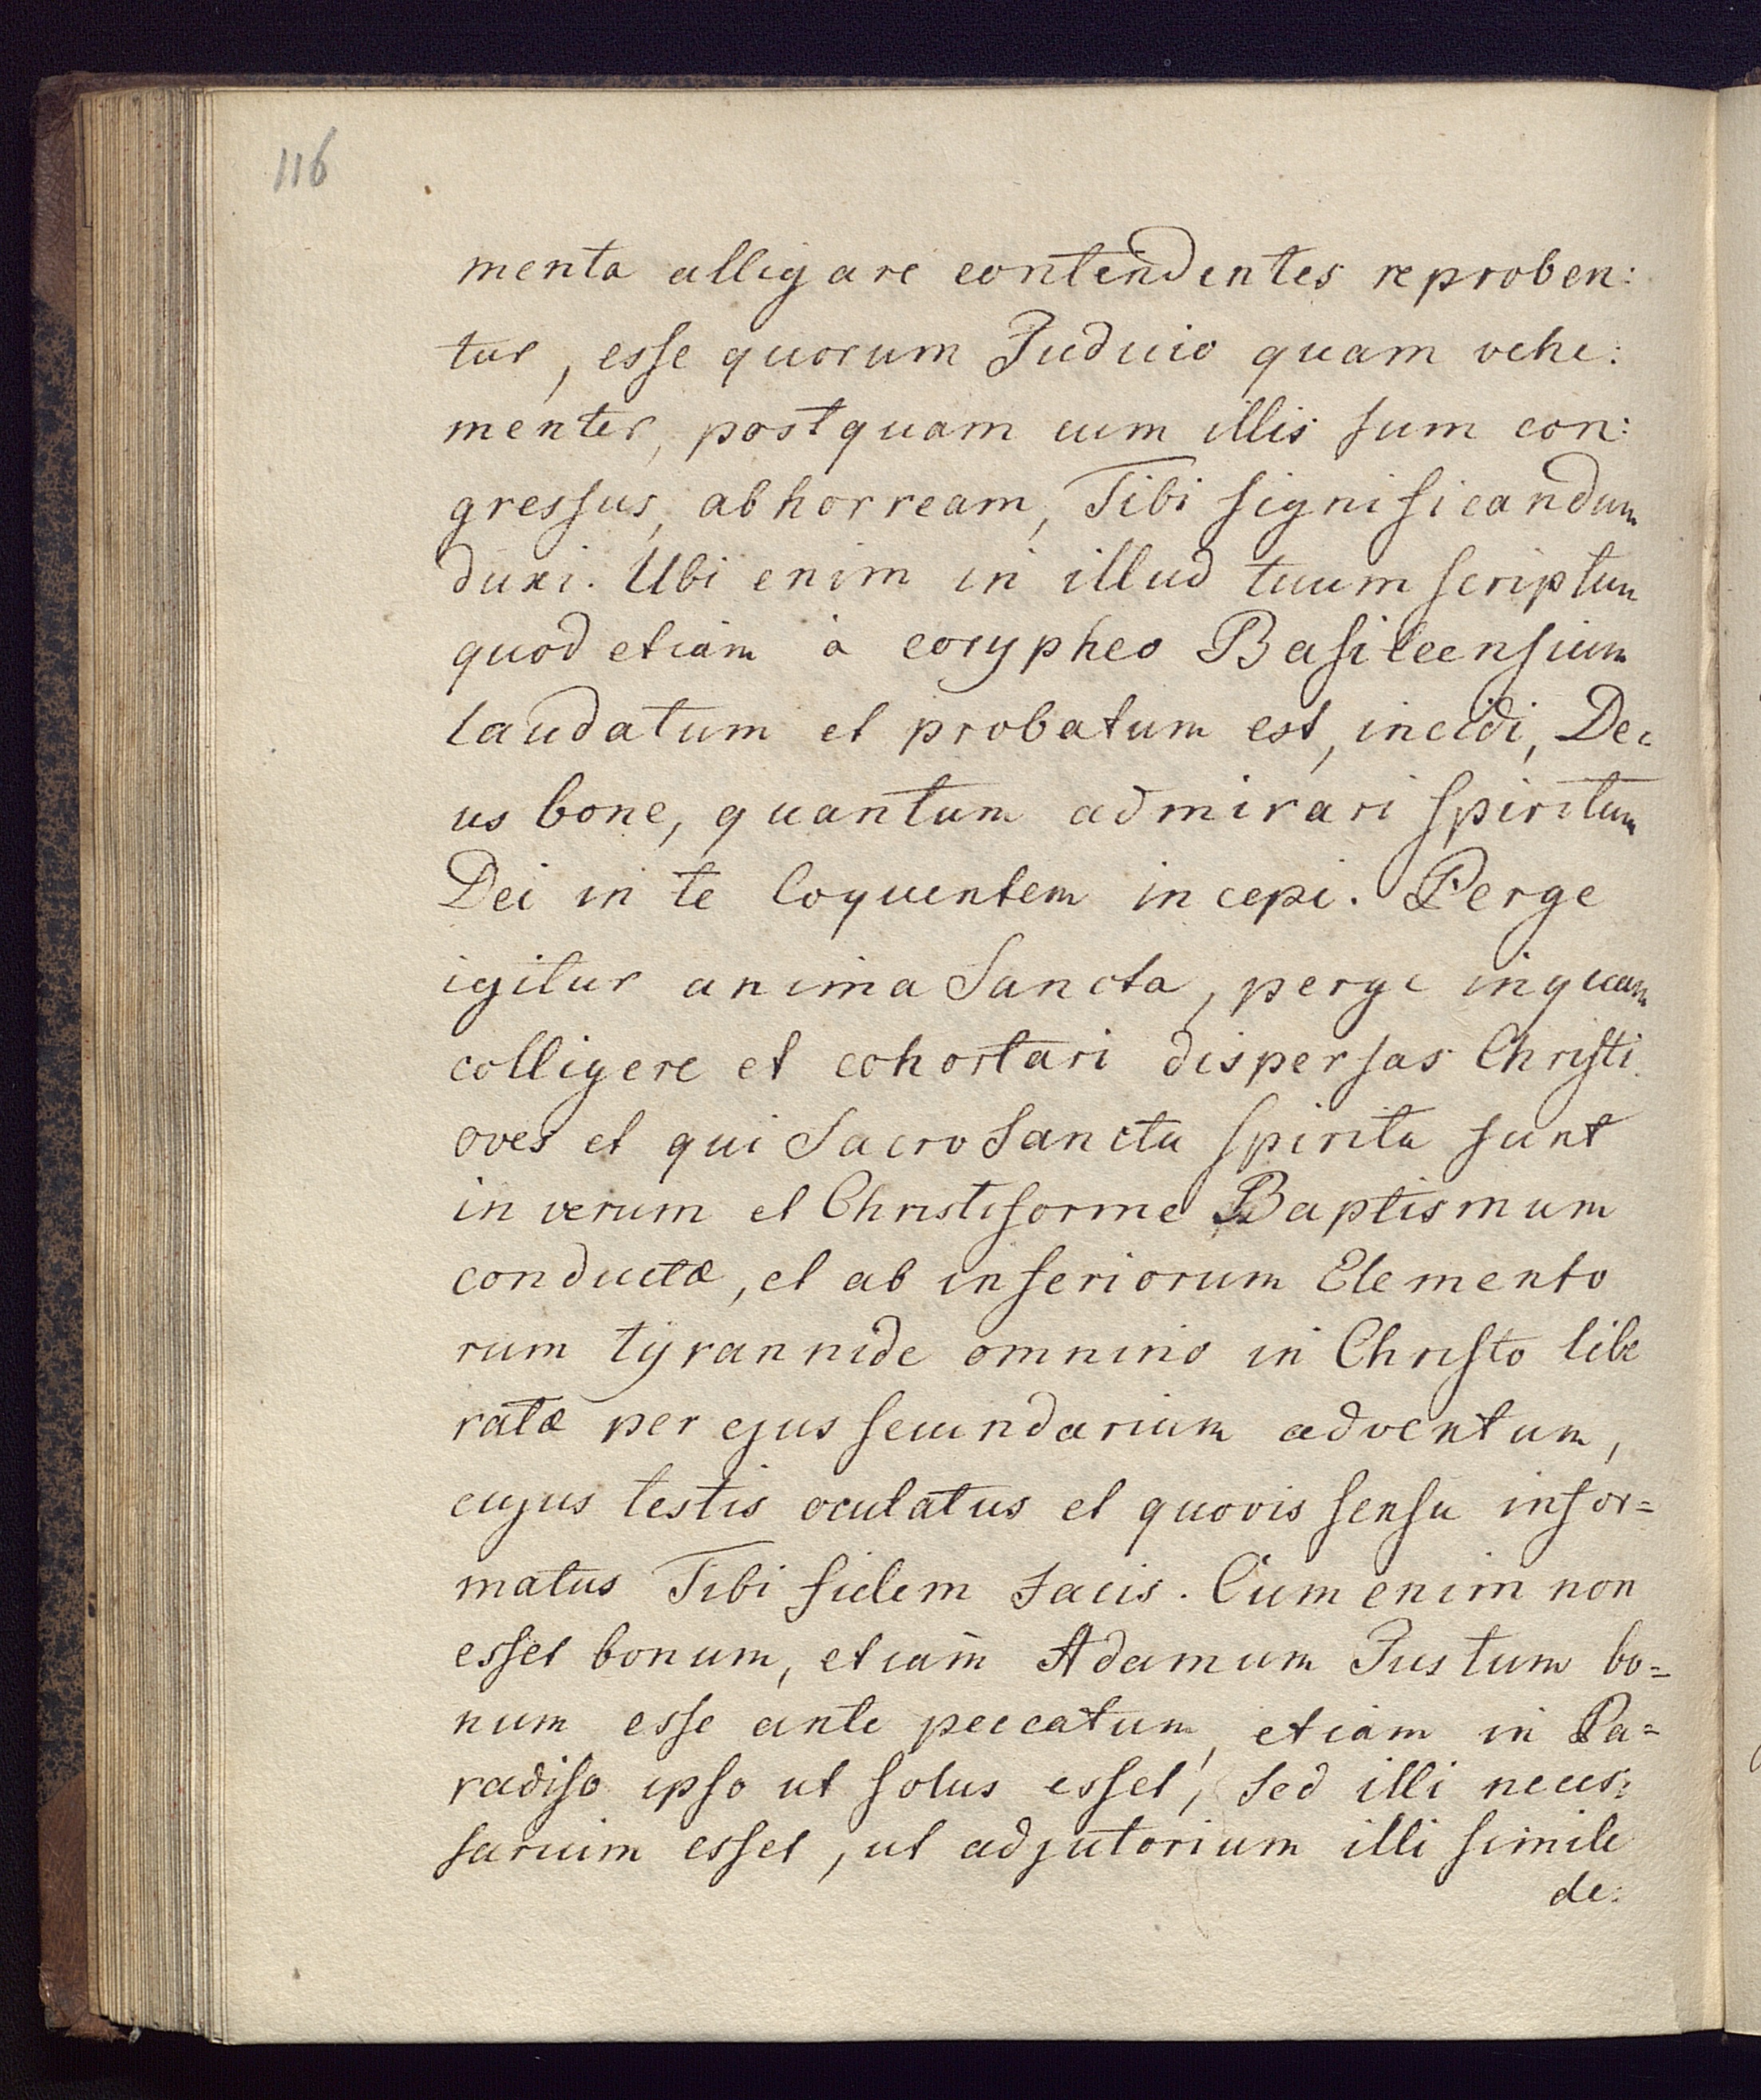 116
menta alligare contendentes reproben:
tur, esse quorum Judicio quam vehe:
menter, postquam cum illis sum con:
gressus, abhorream, Tibi significandum
duxi. Ubi enim in illud tuum scriptum
quod etiam à corypheo Basileensium
laudatum et probatum est, incidi, De:
us bone, quantum admirari spiritum
Dei in te loquentem incepi. Perge
igitur anima Sancta, perge inquam
colligere et cohortari dispersas Christi
oves et qui Sacro Sancta spiritu sunt
in verum et Christiforme Baptismum
conductæ, et ab inferiorum Elemento
rum tyrannide omnino in Christo libe
ratæ per ejus secundarium adventum,
cujus testis oculatus et quovis sensu infor=
matus Tibi fidem facis. Cum enim non
esset bonum, etiam Adamum Justum bo=
num esse ante peccatum, etiam in Pa=
radiso ipso ut solus esset, sed illi neces:
sarium esset, ut adjutorium illi simile
de: